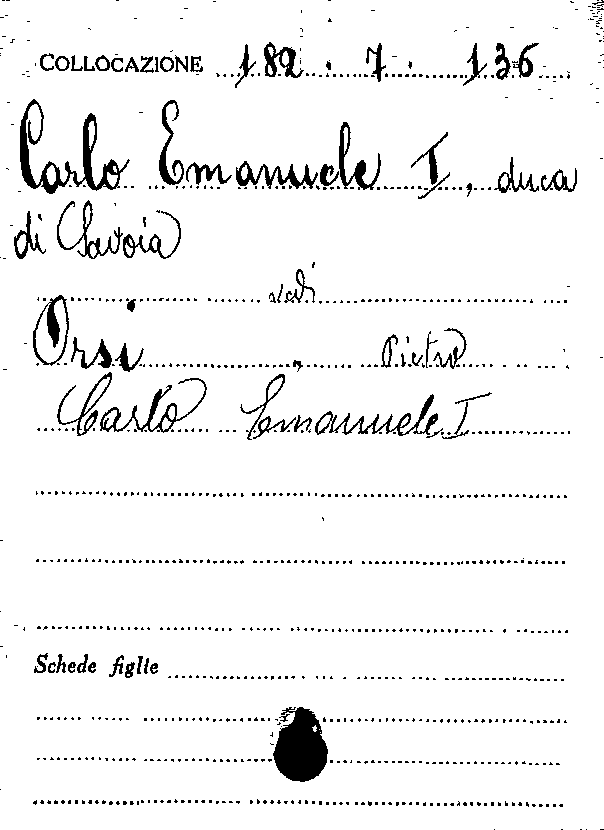 COLLOCAZIONE 182.7.136
Carlo Emanuele I, duca
di Savoia
vedi
Orsi, Pietro
Carlo Emanuele I
Schede figlie